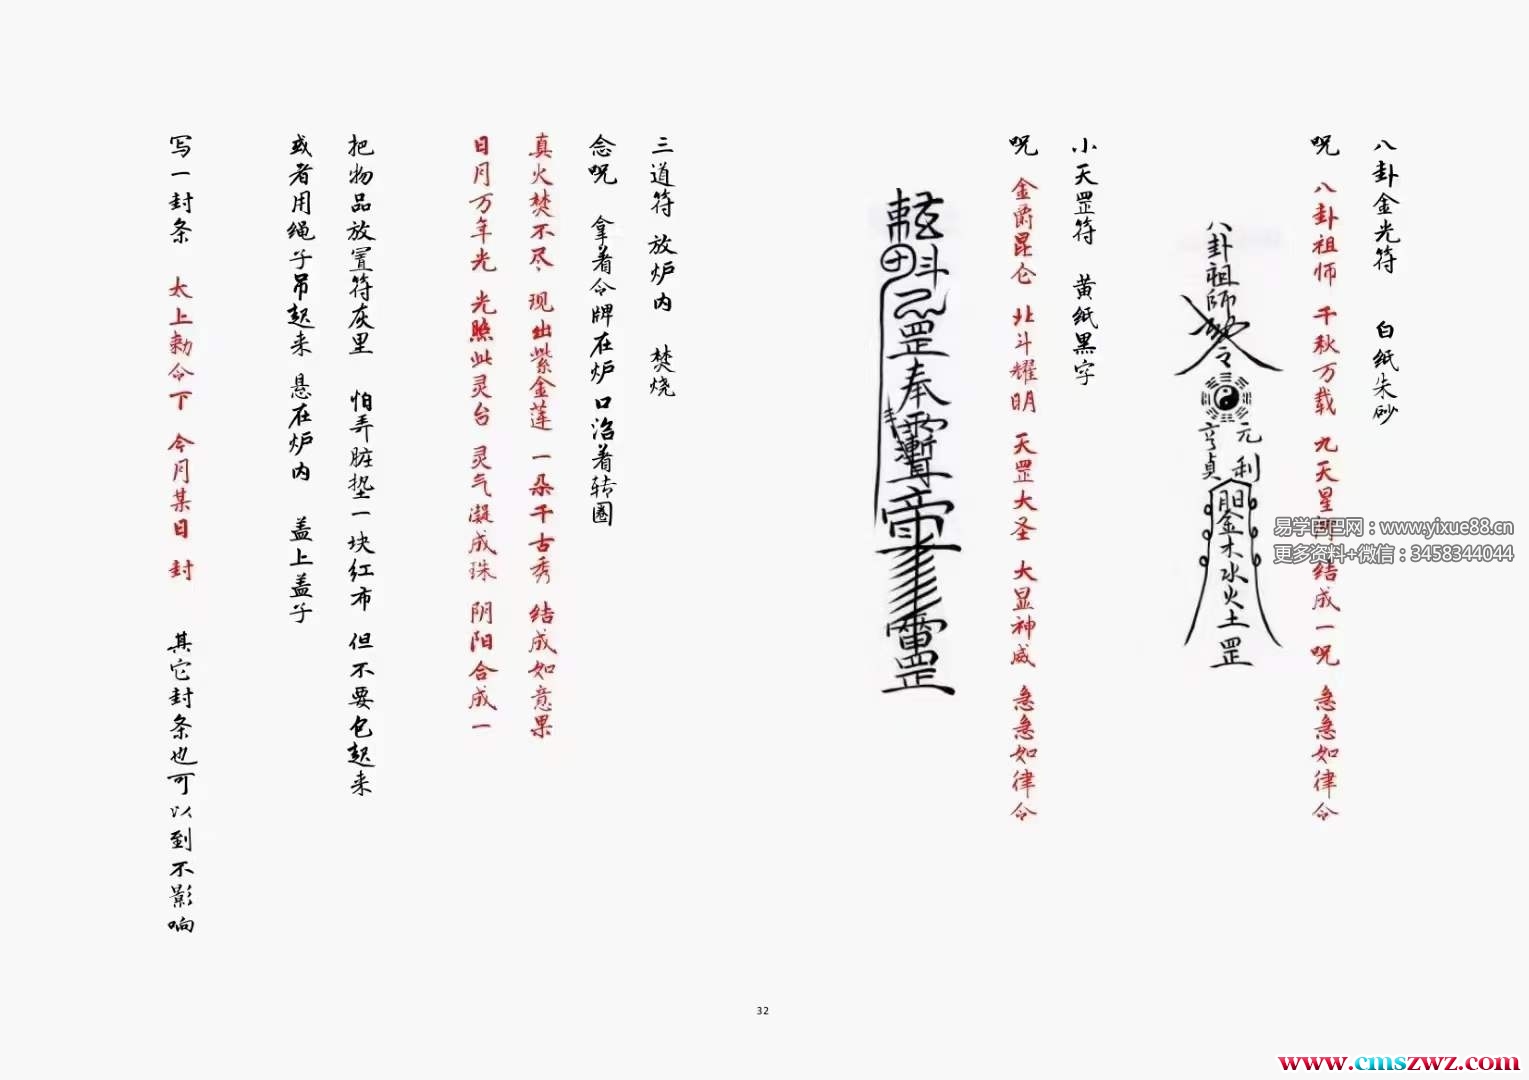 八卦金光符 白纸朱砂
呪 八卦祖师 千秋万载 九天星 结成一呪 急急如律令
八卦祖師
令
元亨利貞
金木水火土罡
小天罡符 黄纸黑字
呪 金爵昆仑 北斗耀明 天罡大圣 大显神威 急急如律令
斗
罡奉
帝
罡
三道符 放炉内 焚烧
念呪 拿着令牌在炉口沿着转圈
真火焚不尽 现出紫金莲 一朵千古秀 结成如意果
日月万年光 光照此灵台 灵气凝成珠 阴阳合成一
把物品放置符灰里 怕弄脏垫一块红布 但不要包起来
或者用绳子吊起来 悬在炉内 盖上盖子
写一封条 太上勅令下 今月某日 封 其它封条也可以到不影响
易学巴巴网：www.yixue88.cn
更多资料+微信：3458344044
32
www.cmszwz.com